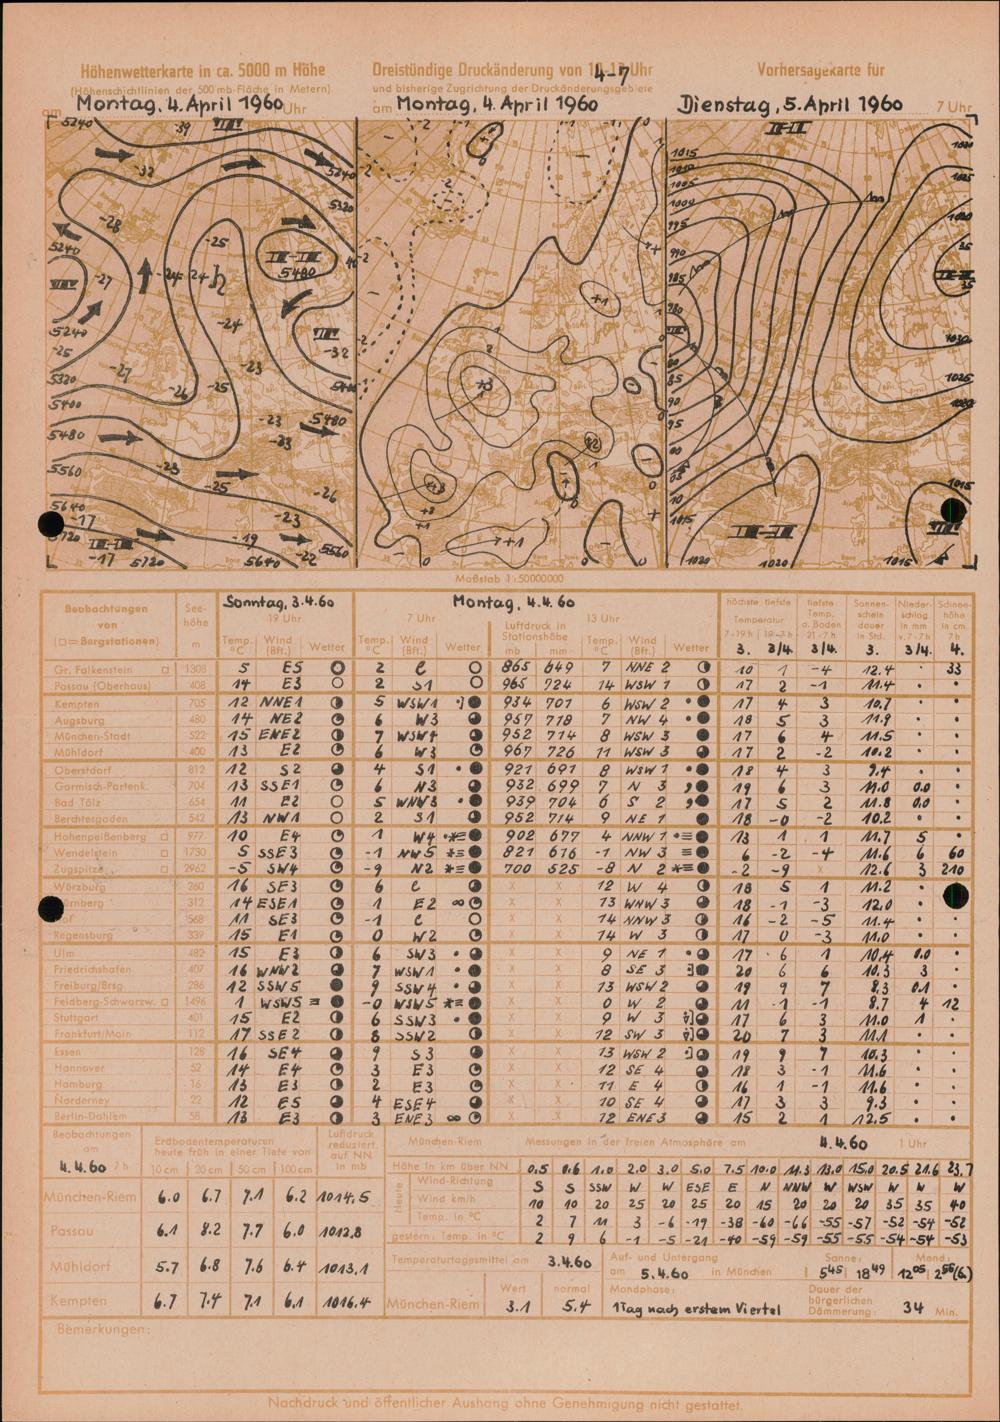 Höhenwetterkarte in ca. 5000 m Höhe
(Höhenschichtlinien der 500 mb-Fläche in Metern)
am Montag, 4. April 1960 Uhr
Dreistündige Druckänderung von 4-7 Uhr
und bisherige Zugrichtung der Druckänderungsgebiete
am Montag, 4. April 1960
Vorhersagekarte für
Dienstag, 5. April 1960 7 Uhr
5240 -39
-32 5240
5320
-28 -25
5240 5480
-27 -24 -24 h
5240 -24
-25 -32
-27 -23
5320 -26 -25
5400
5480 -23 5480
-23
5560 -23
-25 -26
5640
-17 -23
5720 -19
-17 5720 5640 -22 5560
1015
1010
1005
1000
995
990
985
980
85
90
95
1015
1020 1020 1015
1030
1025
1015
Maßstab 1:50000000
Beobachtungen von (□=Bergstationen) Seehöhe m
Sonntag, 3.4.60 19 Uhr
Montag, 4.4.60 7 Uhr 13 Uhr
Temp. °C Wind (Bft.) Wetter Temp. °C Wind (Bft.) Wetter Luftdruck in Stationshöhe mb mm Temp. °C Wind (Bft.) Wetter
höchste tiefste Temperatur 7-19h 19-7h tiefste Temp. a. Boden 21-7h Sonnenscheindauer in Std. Niederschlag in mm v. 7-7h Schneehöhe in cm 7h
3. 3/4. 3/4. 3. 3/4. 4.
Gr. Falkenstein □ 1308 5 E5 2 C 865 649 7 NNE 2 10 1 -4 12.4 · 33
Passau (Oberhaus) 408 14 E3 2 S1 965 724 14 WSW 1 17 2 -1 11.4 · ·
Kempten 705 12 NNE1 5 WSW1 934 701 6 WSW 2 17 4 3 10.7 · ·
Augsburg 480 14 NE2 6 W3 957 718 7 NW 4 18 5 3 11.9 · ·
München-Stadt 522 15 ENE2 7 WSW4 952 714 8 WSW 3 17 6 4 11.5 · ·
Mühldorf 400 13 E2 6 W3 967 726 11 WSW 3 17 2 -2 10.2 · ·
Oberstdorf 812 12 S2 4 S1 921 691 8 WSW 1 18 4 3 9.4 · ·
Garmisch-Partenk. 704 13 SSE1 6 N3 932 699 7 N 3 19 6 3 11.0 0.0 ·
Bad Tölz 654 11 E2 5 WNW3 939 704 6 S 2 17 5 2 11.8 0.0 ·
Berchtesgaden 542 13 NW1 2 S1 952 714 9 NE 1 18 -0 -2 10.2 · ·
Hohenpeißenberg □ 977 10 E4 1 W4 902 677 4 NNW 1 13 1 1 11.7 5 ·
Wendelstein □ 1730 5 SSE3 -1 NW5 821 616 -1 NW 3 6 -2 -4 11.6 6 60
Zugspitze □ 2962 -5 SW4 -9 N2 700 525 -8 N 2 -2 -9 x 12.6 3 210
Würzburg 260 16 SE3 6 C x x 12 W 4 18 5 1 11.2 ·
rnberg 312 14 ESE1 1 E2 x x 13 WNW 3 18 -1 -3 12.0 ·
of 568 11 SE3 -1 C x x 14 NNW 3 16 -2 -5 11.4 · ·
Regensburg 339 15 E1 0 W2 x x 14 W 3 17 0 -3 11.0 · ·
Ulm 482 15 E3 6 SW3 x x 9 NE 1 17 6 1 10.4 0.0 ·
Friedrichshafen 407 16 WNW2 7 WSW1 x x 8 SE 3 20 6 6 10.3 3 ·
Freiburg/Brsg 286 12 SSW5 9 SSW4 x x 13 WSW2 19 9 7 8.3 0.1 ·
Feldberg-Schwarzw. □ 1496 1 WSW5 -0 WSW5 x x 0 W 2 11 -1 -1 8.7 4 12
Stuttgart 401 15 E2 6 SSW3 x x 9 W 3 17 6 3 11.0 1 ·
Frankfurt/Main 112 17 SSE2 8 SSW2 x x 12 SW 3 20 7 3 11.1 · ·
Essen 128 16 SE4 9 S3 x x 13 WSW 2 19 9 7 10.3 · ·
Hannover 52 14 E4 3 E3 x x 12 SE 4 18 3 -1 11.6 · ·
Hamburg 16 13 E3 2 E3 x x 11 E 4 16 1 -1 11.6 · ·
Norderney 22 12 E5 4 ESE4 x x 10 SE 4 17 3 3 9.3 · ·
Berlin-Dahlem 58 13 E3 3 ENE3 x x 12 ENE3 15 2 1 12.5 · ·
Beobachtungen am 4.4.60 7h
Erdbodentemperaturen heute früh in einer Tiefe von
10 cm 20 cm 50 cm 100 cm
Luftdruck reduziert auf NN. in mb
München-Riem 6.0 6.7 7.1 6.2 1014.5
Passau 6.1 8.2 7.7 6.0 1012.8
Mühldorf 5.7 6.8 7.6 6.4 1013.1
Kempten 6.7 7.4 7.1 6.1 1016.4
München-Riem Messungen in der freien Atmosphäre am 4.4.60 1 Uhr
Höhe in km über NN 0.5 0.6 1.0 2.0 3.0 5.0 7.5 10.0 11.3 13.0 15.0 20.5 21.6 23.7
Heute
Wind-Richtung S S SSW W W ESE E N NNW W WSW W W W
Wind km/h 10 10 20 25 20 25 20 15 20 20 20 35 35 40
Temp. in °C 2 7 11 3 -6 -19 -38 -60 -66 -55 -57 -52 -54 -52
gestern: Temp. in °C 2 9 6 -1 -5 -21 -40 -59 -59 -55 -55 -54 -54 -53
Temperaturtagesmittel am 3.4.60
Wert normal
München-Riem 3.1 5.4
Auf- und Untergang am 5.4.60 in München
Sonne: 5 45 18 49
Mond: 12 05 2 56 (6.)
Mondphase: 1 Tag nach erstem Viertel
Dauer der bürgerlichen Dämmerung: 34 Min.
Bemerkungen:
Nachdruck und öffentlicher Aushang ohne Genehmigung nicht gestattet.